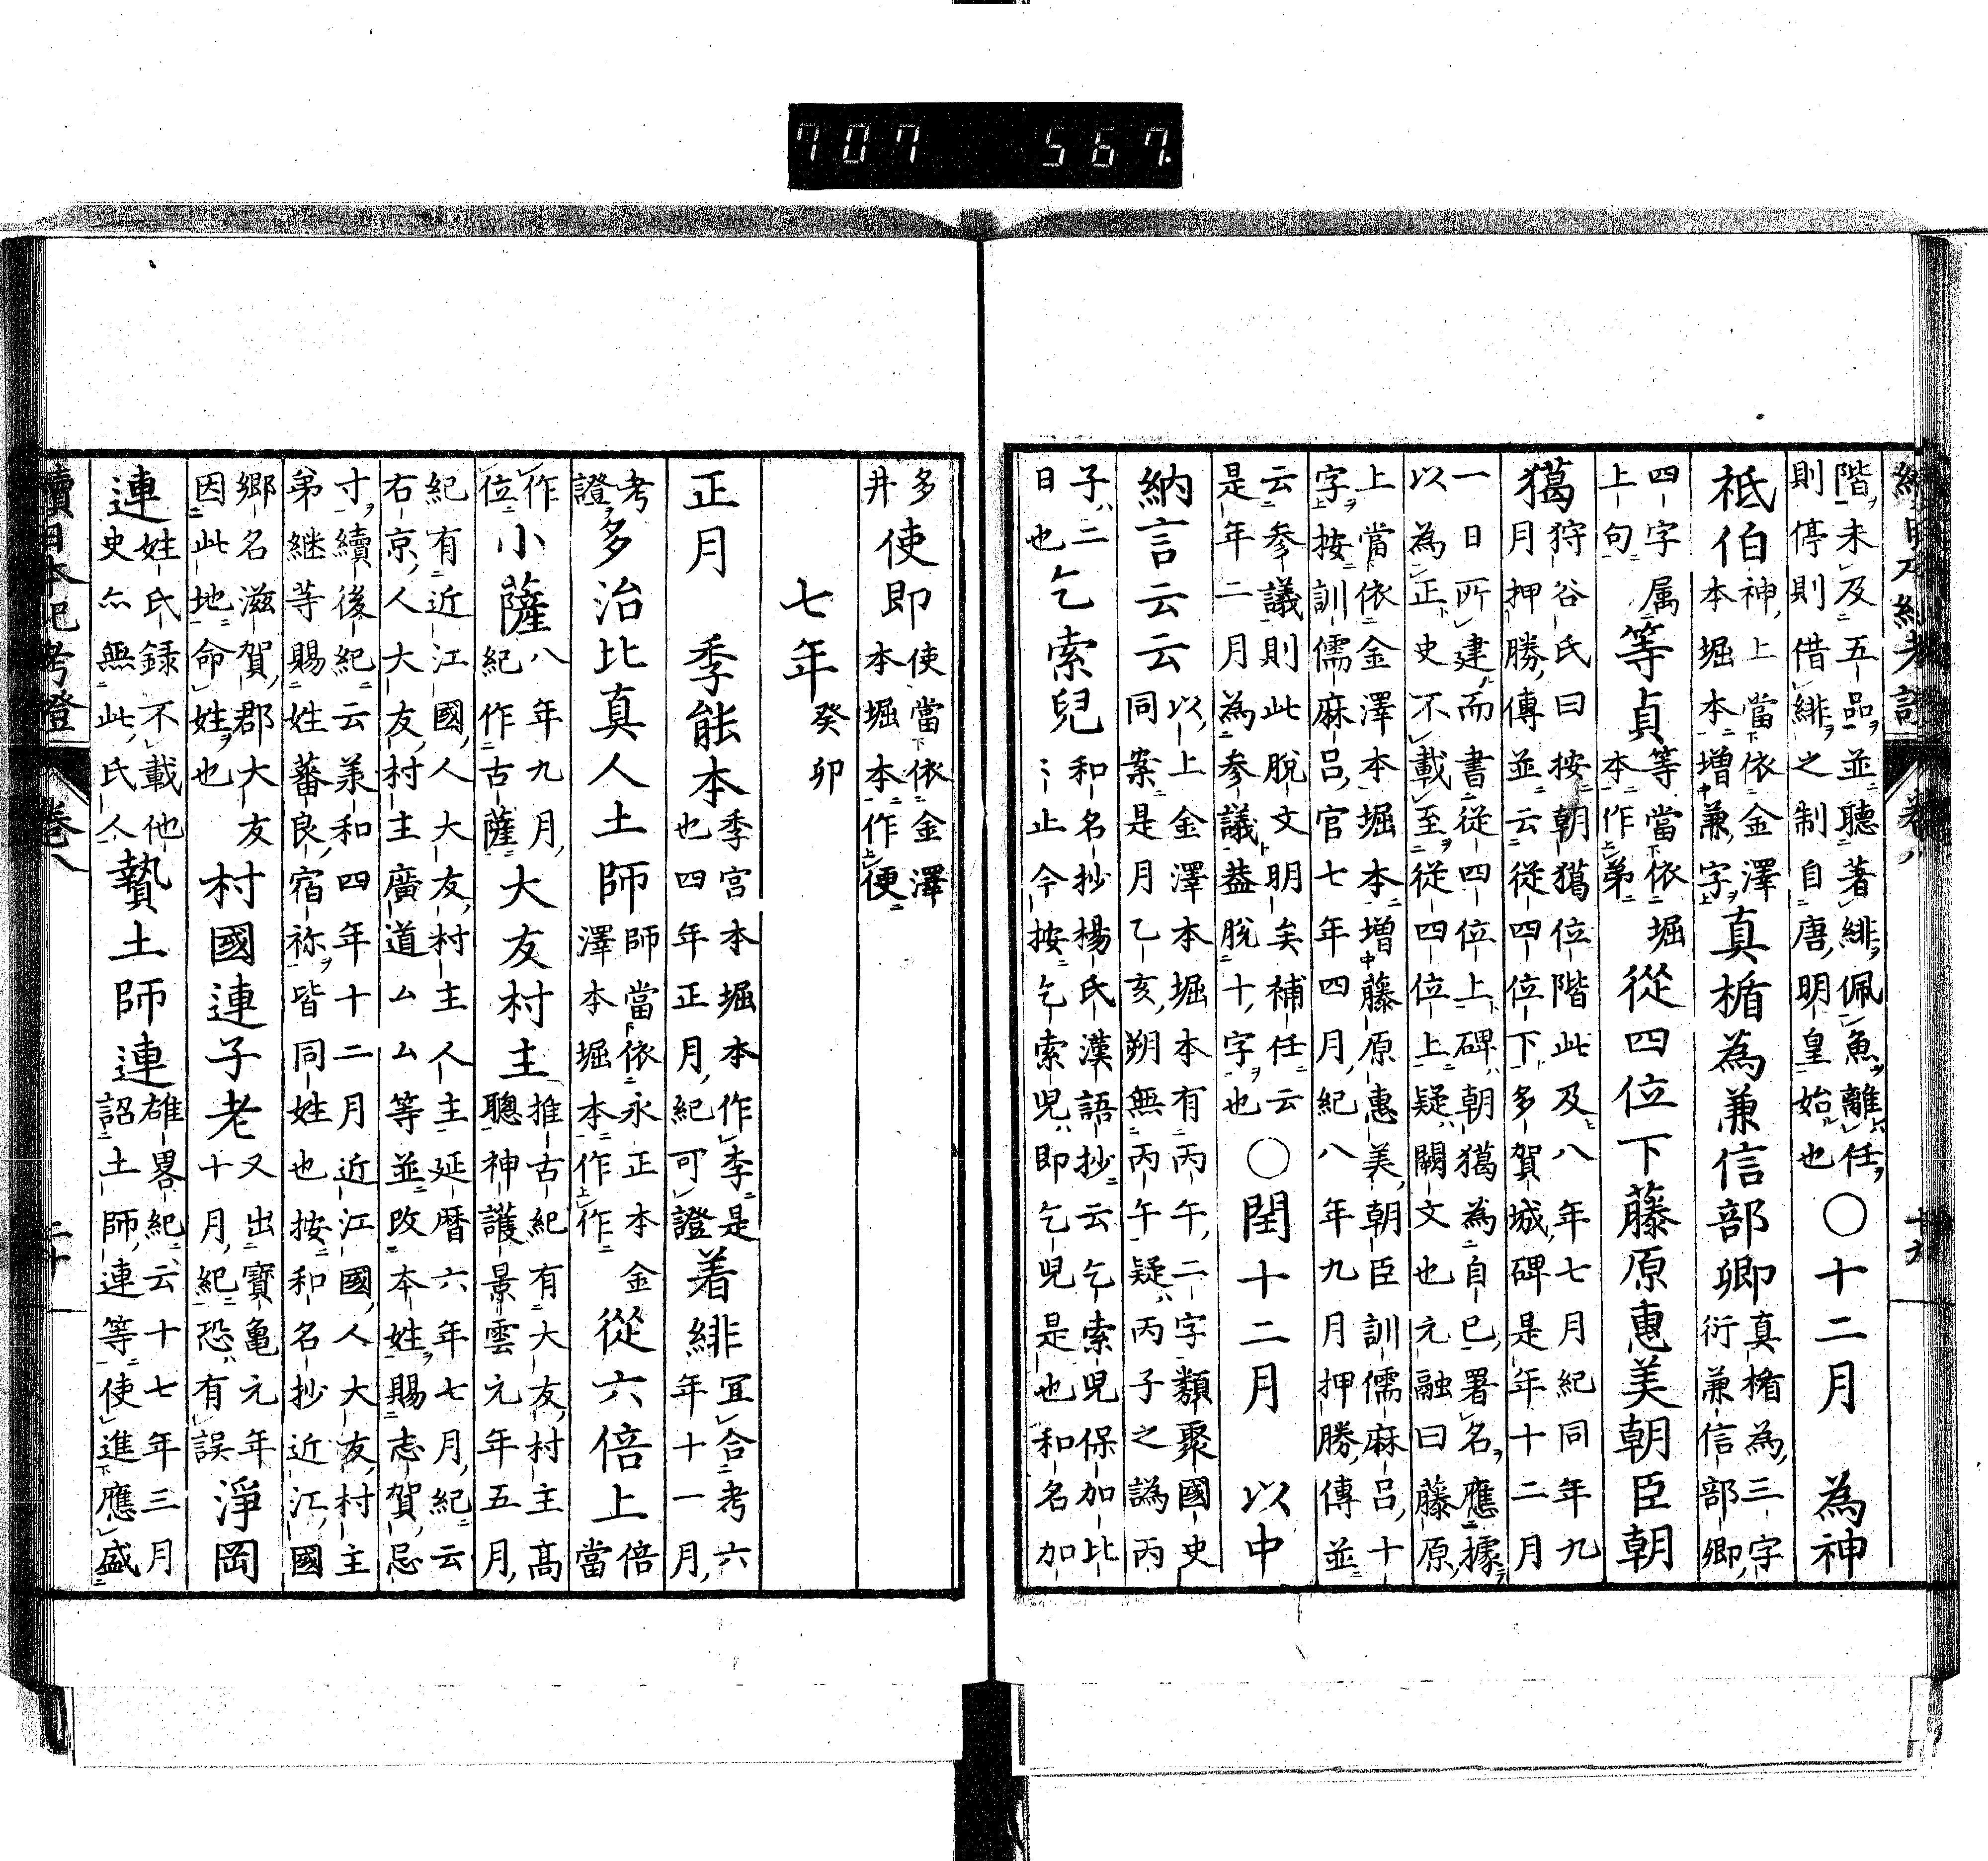 707 567.
續日本紀考證 卷八 十九
階未及五品並聽著緋佩魚離任
則停則借緋之制自唐明皇始也
○十二月 為神
祇伯
神上當依金澤
本堀本増兼字
真楯為兼信部卿
真楯為三字
衍兼信部卿
四字属
上句
等貞
等當依堀
本作弟
從四位下藤原惠美朝臣朝
獦
狩谷氏曰按朝獦位階此及八年七月紀同年九
月押勝傳並云從四位下多賀城碑是年十二月
一日所建而書從四位上碑朝獦為自己署名應據
以為正史不載至從四位上疑闕文也元融曰藤原
上當依金澤本堀本増藤原惠美朝臣訓儒麻呂十
字按訓儒麻呂官七年四月紀八年九月押勝傳並
云參議則此脫文明矣補任云
是年二月為參議蓋脫十字也
○閏十二月 以中
納言云云
以上金澤本堀本有丙午二字類聚國史
同案是月乙亥朔無丙午疑丙子之譌丙
子二
日也
乞索兒
和名抄楊氏漢語抄云乞索兒保加比
々止今按乞索兒即乞兒是也和名加
多
井
使即
使當依金澤
本堀本作便
七年癸卯
正月 季能本
季宮本堀本作李是
也四年正月紀可證
着緋
宜合考六
年十一月
考
證
多治比真人土師
師當依永正本金
澤本堀本作作
從六倍上
倍
當
作
位
小薩
八年九月
紀作古薩
大友村主
推古紀有大友村主髙
聰神護景雲元年五月
紀有近江國人大友村主人主延暦六年七月紀云
右京人大友村主廣道ムム等並改本姓賜志賀忌
寸續後紀云羕和四年十二月近江國人大友村主
弟継等賜姓蕃良宿祢皆同姓也按和名抄近江國
郷名滋賀郡大友
因此地命姓也
村國連子老
又出寶亀元年
十月紀恐有誤
淨岡
連
姓氏録不載他
史亦無此氏人
贄土師連
雄畧紀云十七年三月
詔土師連等使進應盛
續日本紀考證 卷八 二十